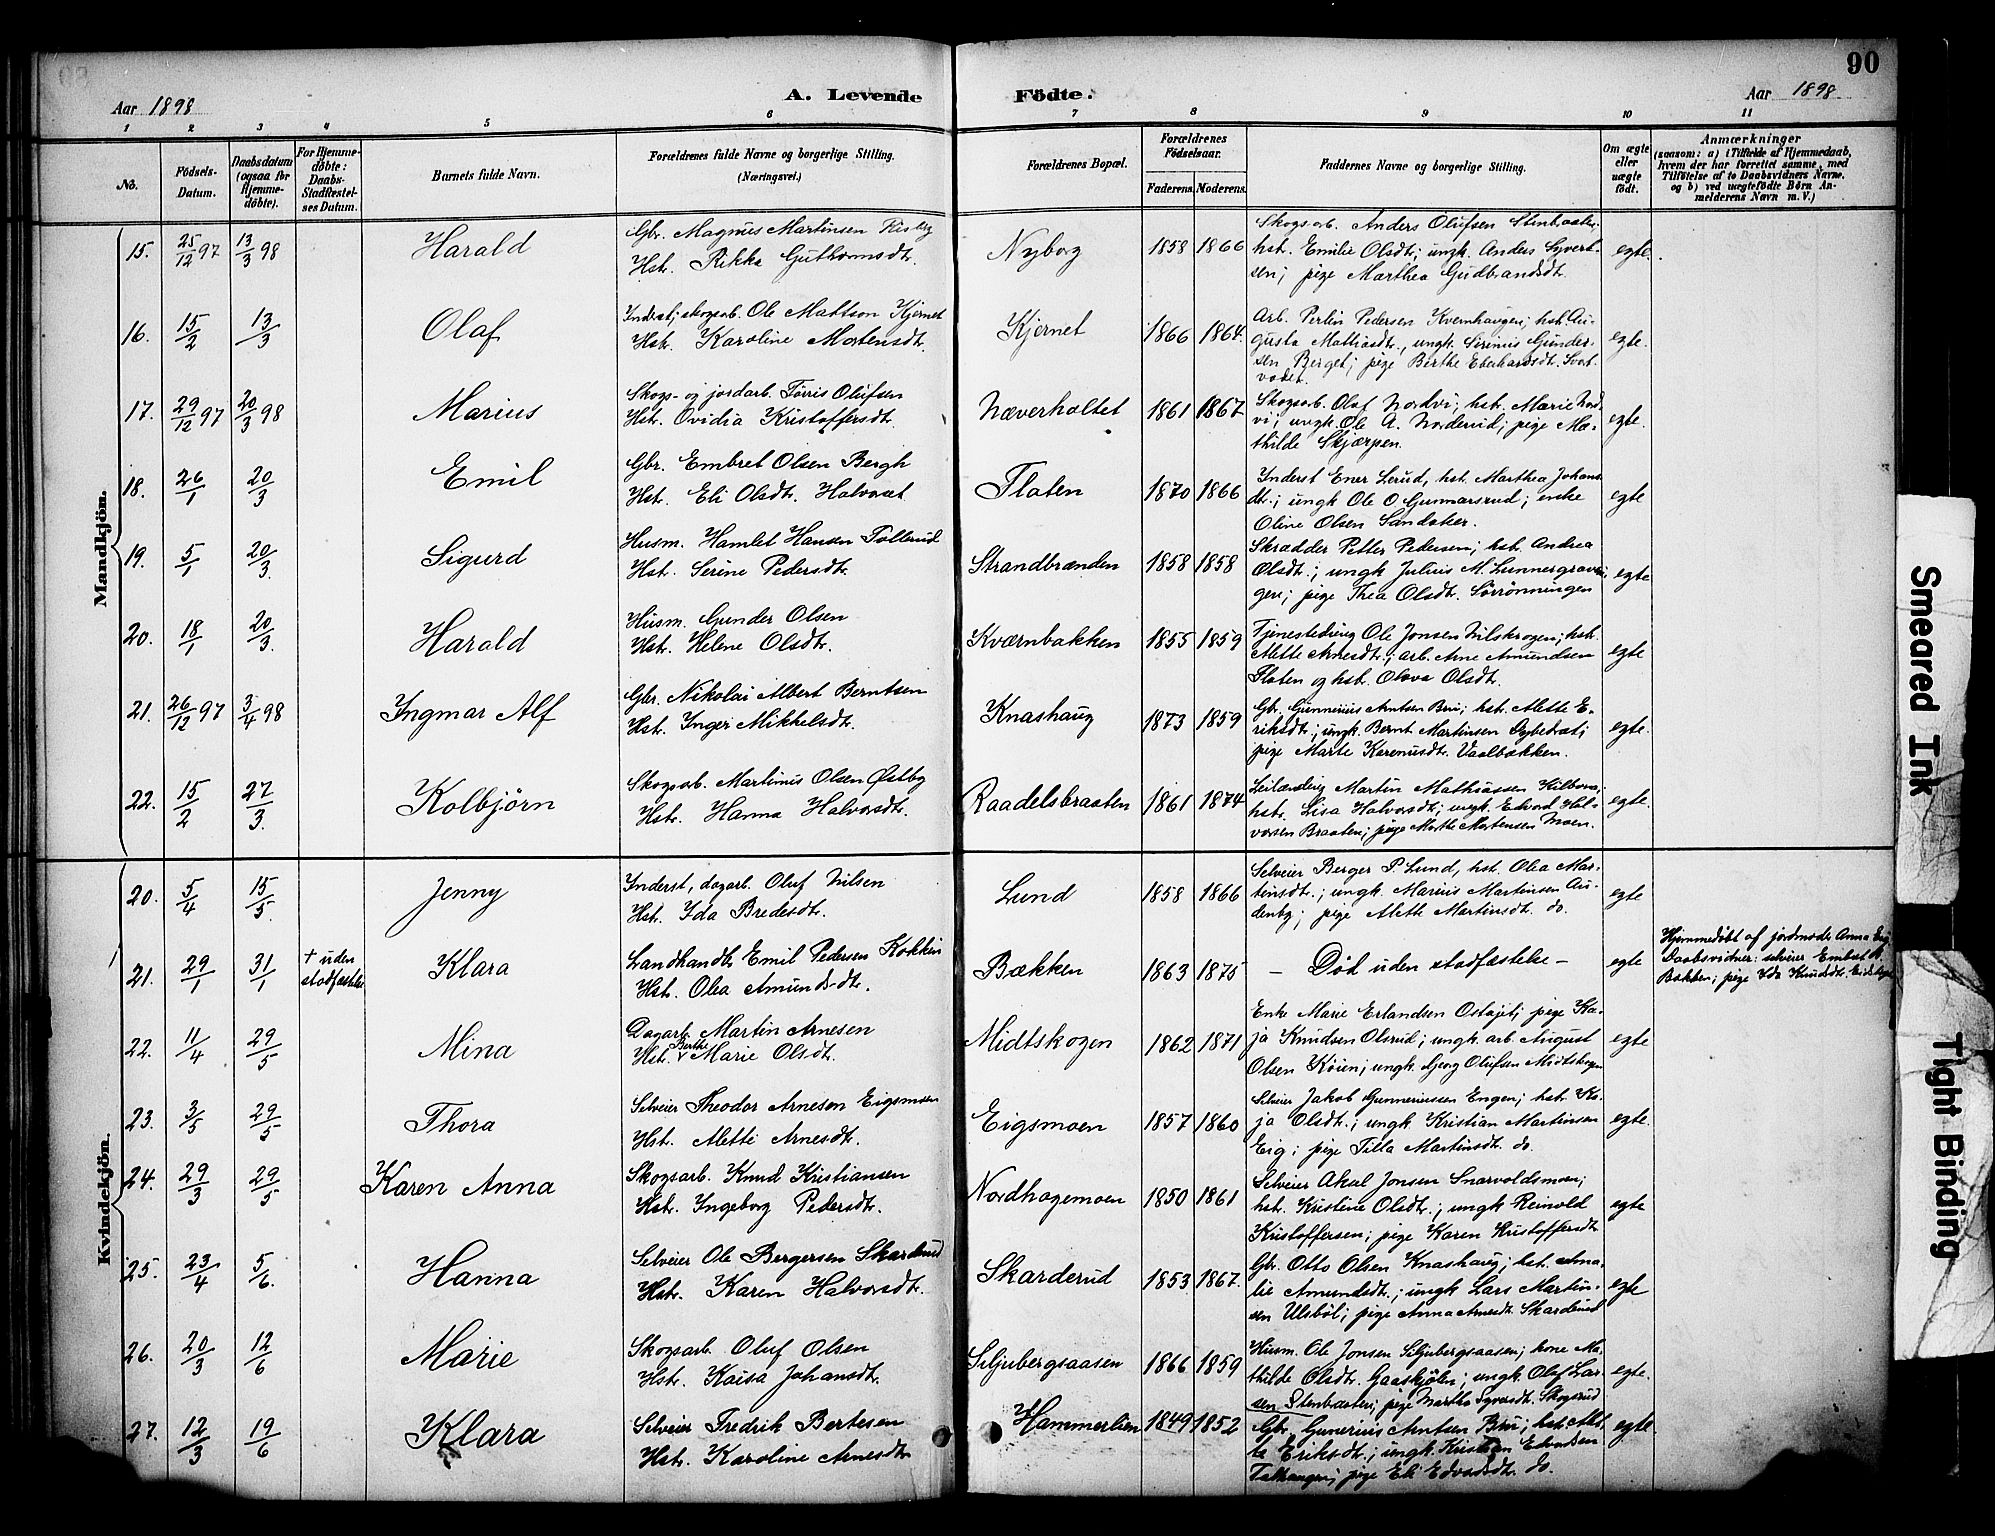 90
Aar 1898
A. Levende Födte.
Aar 1898
1 2 3 4 5 6 7 8 9 10 11
No.
Födsels-Datum.
Daabsdatum (ogsaa for Hjemmedöbte).
For Hjemmedöbte: Daabs-Stadfæstelses Datum.
Barnets fulde Navn.
Forældrenes fulde Navne og borgerlige Stilling.
(Næringsvei.)
Forældrenes Bopæl.
Forældrenes Födselsaar.
Faderens. Moderens.
Faddernes Navne og borgerlige Stilling.
Om ægte eller uægte födt.
Anmærkninger
(saasom: a) i Tilfælde af Hjemmedaab, hvem der har forrettet samme, med Tilföielse af to Daabsvidners Navne, og b) ved uægtefödte Börn Anmelderens Navn m. V.)
Mandkjön.
15. 25/12 97 13/3 98 Harald
Gbr. Magnus Martinsen Risby
Hst. Rikka Guthormsdt.
Nyborg 1858 1866
Skogsarb. Anders Olufsen Stenbraaten;
hst. Emilie Olsdt; ungk. Anders Syvert-
sen; pige Marthea Gudbrandsdt.
egte.
16. 15/2 13/3 Olaf
Inderst, skogsarb. Ole Mattson Kjernet
Hst. Karoline Mortensdt.
Kjernet 1866 1864.
Arb. Perlin Pedersen Kvernhaugen; hst. Au-
gusta Mathiasdt., ungk. Serinius Gunder-
sen Berget; pige Berthe Eberhardsdt. Svart-
vadet.
egte.
17. 29/12 97 20/3 98 Marius
Skogs- og jordarb. Törris Olufsen
Hst. Ovidia Kristoffersdt.
Næverholtet 1861 1867.
Skogsarb. Olaf Nordvi; hst. Marie Nord-
vi; ungk. Ole A. Norderud; pige Ma-
thilde Skjærpen.
egte.
18. 26/1 20/3 Emil
Gbr. Embret Olsen Bergh
Hst. Eli Olsdt. Halvorset
Flaten 1870 1866
Inderst Ener Lerud, hst. Marthea Johans-
dt.; ungk Ole O Gunnarsrud; enke
Oline Olsen Sandaker.
egte
19. 5/1 20/3. Sigurd
Husm. Hamlet Hansen Tollerud
Hst. Serine Pedersdt.
Strandbrænden 1858 1858
Skrædder Petter Pedersen; hst. Andrea
Olsdt.; ungk Julius M. Lunnergraven;
pige Thea Olsdt. Sörrönningen
egte
20. 18/1 20/3. Harald
Husm. Gunder Olsen
Hst. Helene Olsdt.
Kværnbakken 1855 1859
Tjenestedreng Ole Jonsen Nilskrogen; hst.
Alette Arnesdt.; arb. Arne Amundsen
Flaten og hst. Olava Olsdt.
egte
21. 26/12 97 3/4 98 Ingmar Alf
Gbr. Nikolai Albert Berntsen
Hst. Inger Mikkelsdt.
Knashaug 1873 1859
Gbr. Gunnerius Arntsen Bru; hst. Alette E-
riksdt.; ungk. Bernt Martinsen
pige Marte Karenusdt. Vaalbakken.
egte.
22. 15/2 27/3. Kolbjörn
Skogsarb. Martinus Olsen Østby
Hst. Hanna Halvorsdt.
Raadelsbraaten 1861 1874
Leilænding Martin Mathiassen
hst. Lisa Halvorsdt; ungk. Edvard Hal-
vorsen Braaten; pige Marthe Mortensen Moen.
egte.
Kvindekjön.
20. 5/4 15/5. Jenny
Inderst, dagarb. Oluf Nilsen
Hst. Ida Bredesdt.
Lund 1858 1866
Selveier Berger P. Lund, hst. Olea Mar-
tinsdt.; ungk. Marius Martinsen Au-
denby; pige Alette Martinsdt. do.
egte
21. 29/1 31/1 + uden stadfæstelse Klara
Landhandl. Emil Pedersen Kokkin
Hst. Olea Amundsdt.
Bækken 1863 1875
— Död uden stadfæstelse —
egte
Hjemmedöbt af jordmoder Anna Eig.
Daabsvidner: selveier Embret
Bakken; pige Ida Knudsdt.
22. 11/4 29/5 Mina
Dagarb. Martin Arnesen
Hst. Berthe Marie Olsdt.
Midtskogen 1862 1871
Enke Marie Erlandsen; pige Ka-
ja Knudsen Olsrud; ungk. arb. August
Olsen Köien; ungk. Georg Olufsen Midtskogen
egte
23. 3/5 29/5 Thora
Selveier Theodor Arnesen Eigsmoen
Hst. Alette Arnesdt.
Eigsmoen 1857 1860
Selveier Jakob Gunneriussen Engen; hst. Ka-
ja Olsdt.; ungk Kristian Martinsen
Eig; pige Tilla Martinsdt. do.
egte.
24. 29/3 29/5 Karen Anna
Skogsarb. Knud Kristiansen
Hst. Ingeborg Pedersdt.
Nordhagemoen 1850 1861
Selveier Aksel Jonsen Snarvoldsmoen;
hst. Kristine Olsdt.; ungk Reinold
Kristoffersen; pige Karen Kristoffersdt
egte
25. 23/4 5/6. Hanna
Selveier Ole Bergersen Skarderud
Hst. Karen Halvorsdt.
Skarderud 1853 1867.
Gbr. Otto Olsen Knashaug; hst. Ama-
lie Amundsdt.; ungk Lars Martin-
sen Ulsböl; pige Anna Arnesdt. Skarderud
egte
26. 20/3 12/6 Marie
Skogsarb. Oluf Olsen
Hst. Kaisa Johansdt.
Siljubergsaasen 1866 1859
Husm. Ole Jonsen Siljubergsaasen; kone Ma-
thilde Olsdt. Gaaskjölen; ungk. Olaf Lar-
sen Stenbraaten; pige Martha Syversdt. Skogsrud
egte.
27. 12/3 19/6 Klara
Selveier Fredrik Bertesen
Hst. Karoline Arnesdt.
Hammerlien 1849 1852
Gbr. Gunerius Arntsen Bru; hst. Alet-
te Eriksdt.; ungk. Kristian Edvardsen
pige Eli Edvardsdt. do.
egte.
Smeared Ink
Tight Binding